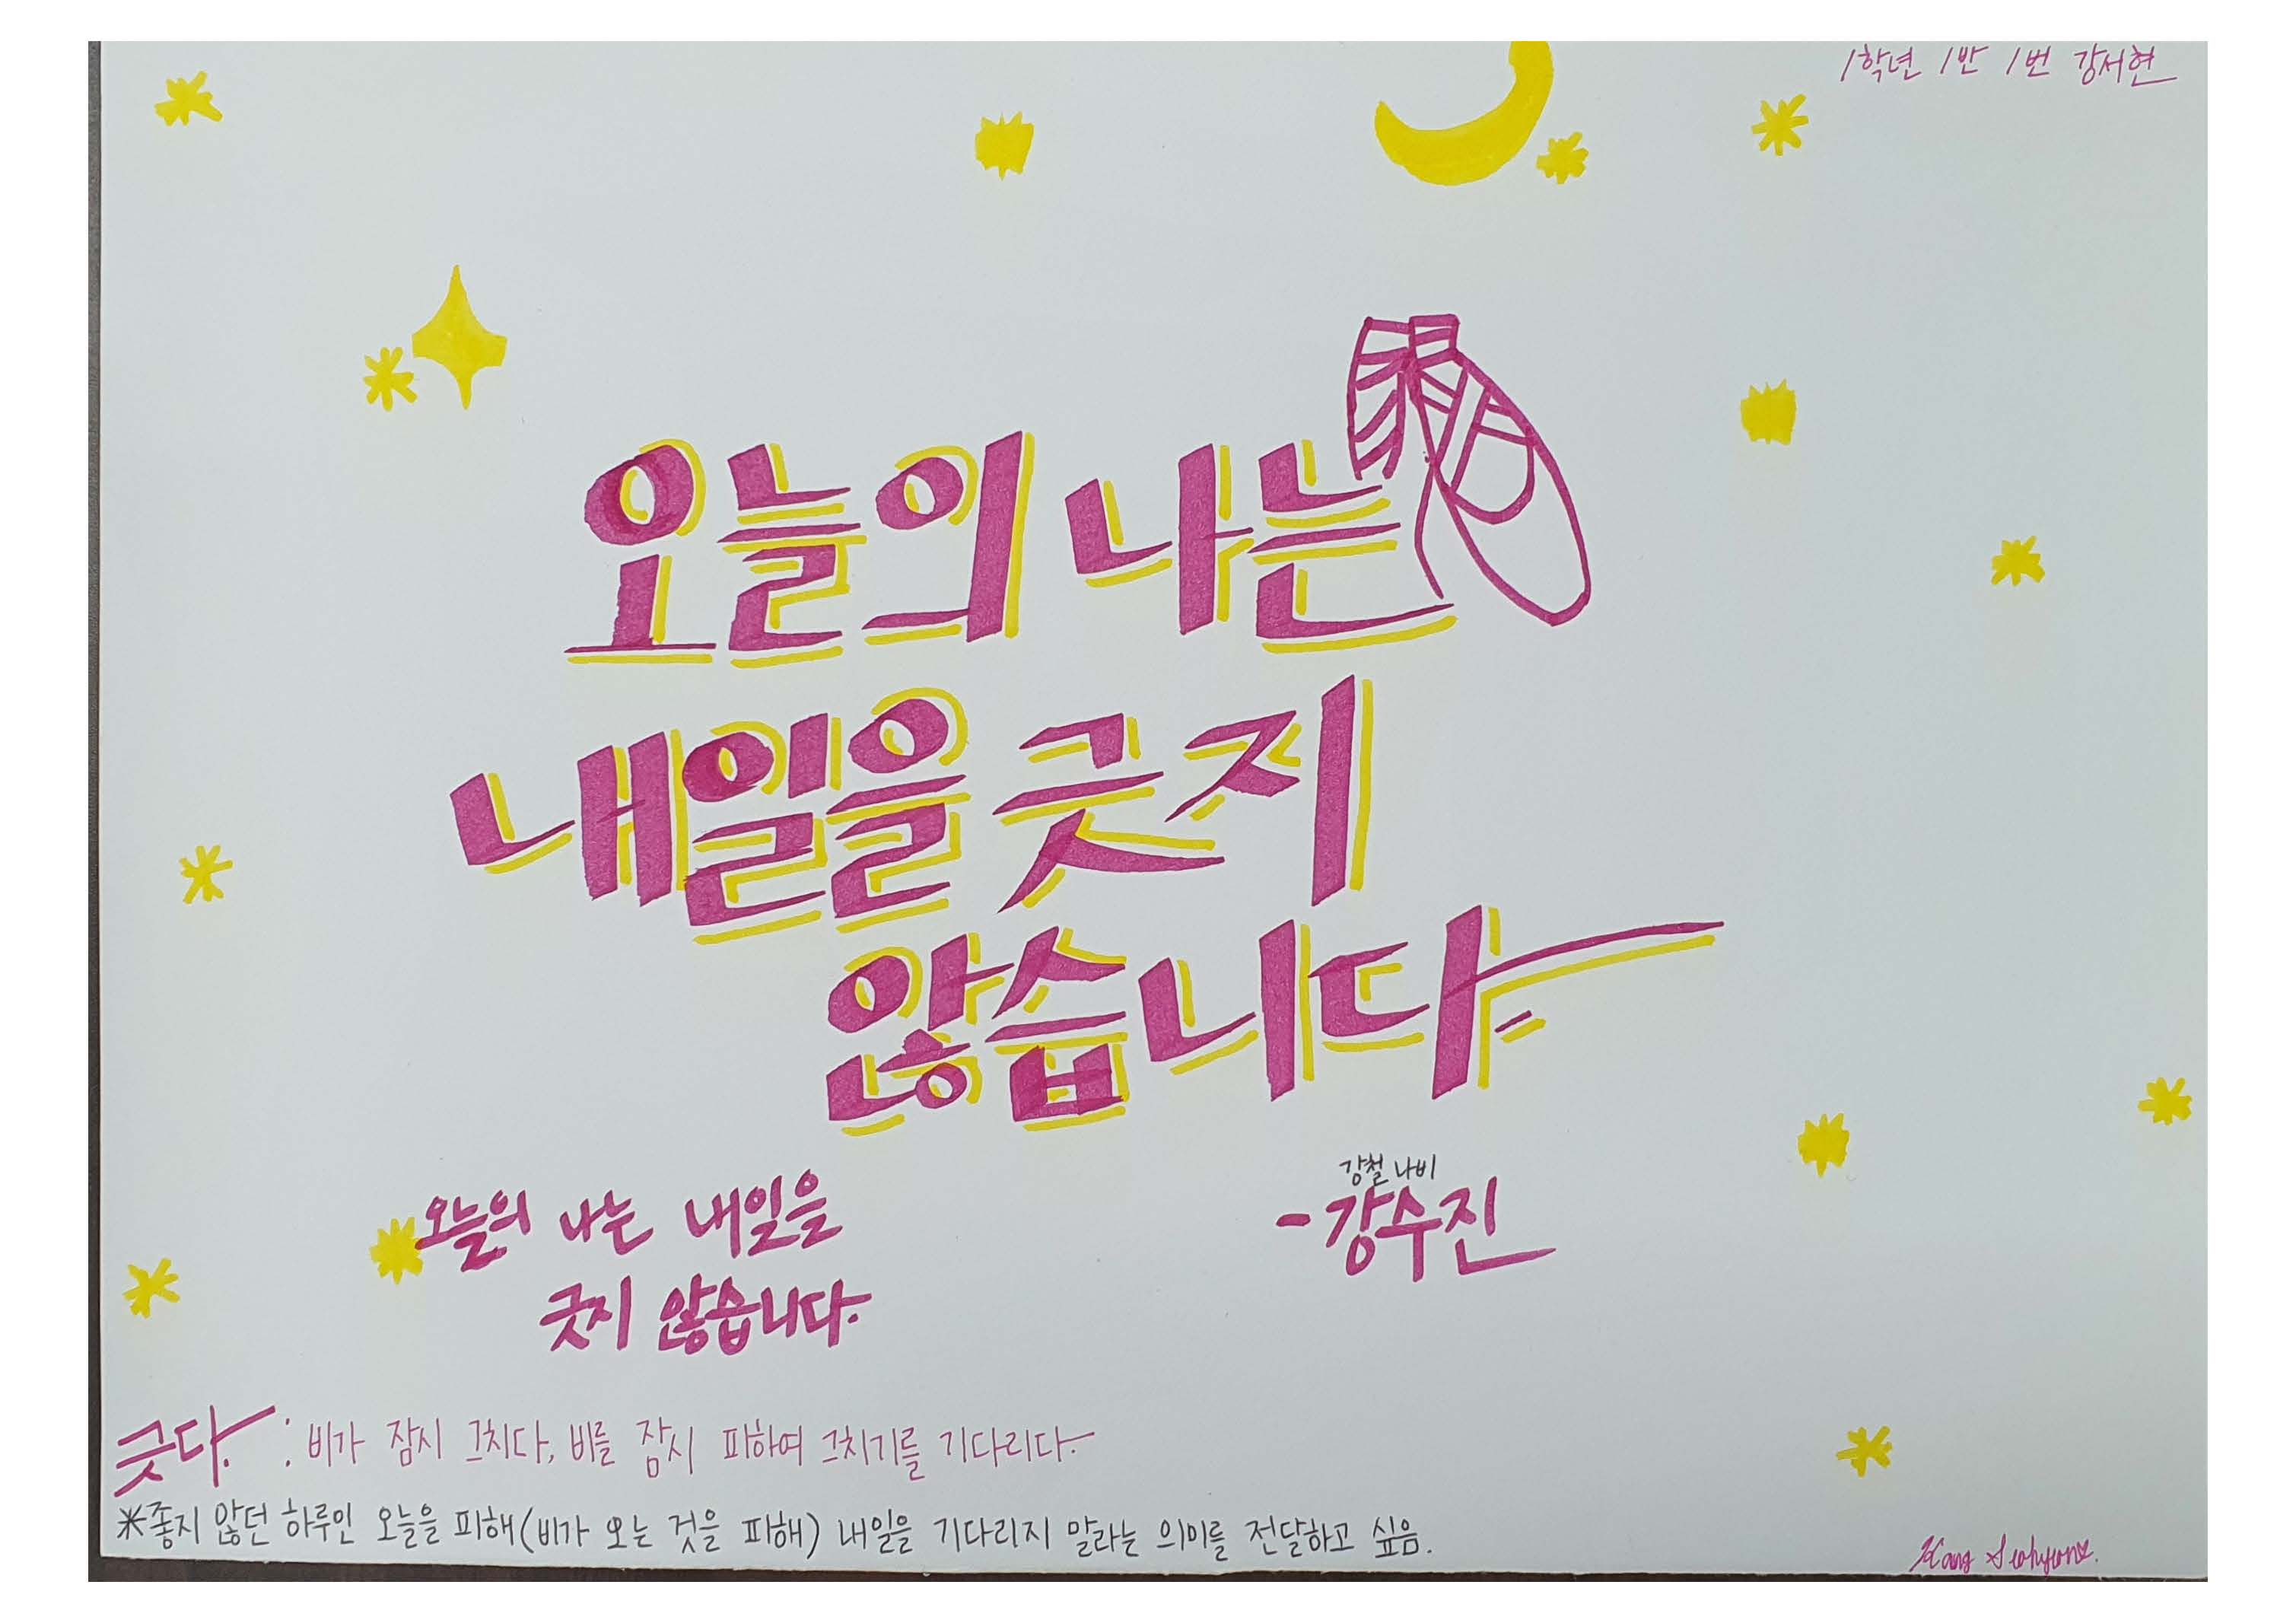 1학년 1반 1번 강서현
오늘의 나는
내일을 긋지
않습니다
오늘의 나는 내일을
긋지 않습니다.
강철 나비
- 강수진
긋다. : 비가 잠시 그치다, 비를 잠시 피하여 그치기를 기다리다.
※좋지 않던 하루인 오늘을 피해(비가 오는 것을 피해) 내일을 기다리지 말라는 의미를 전달하고 싶음.
Kang Seohyeon.